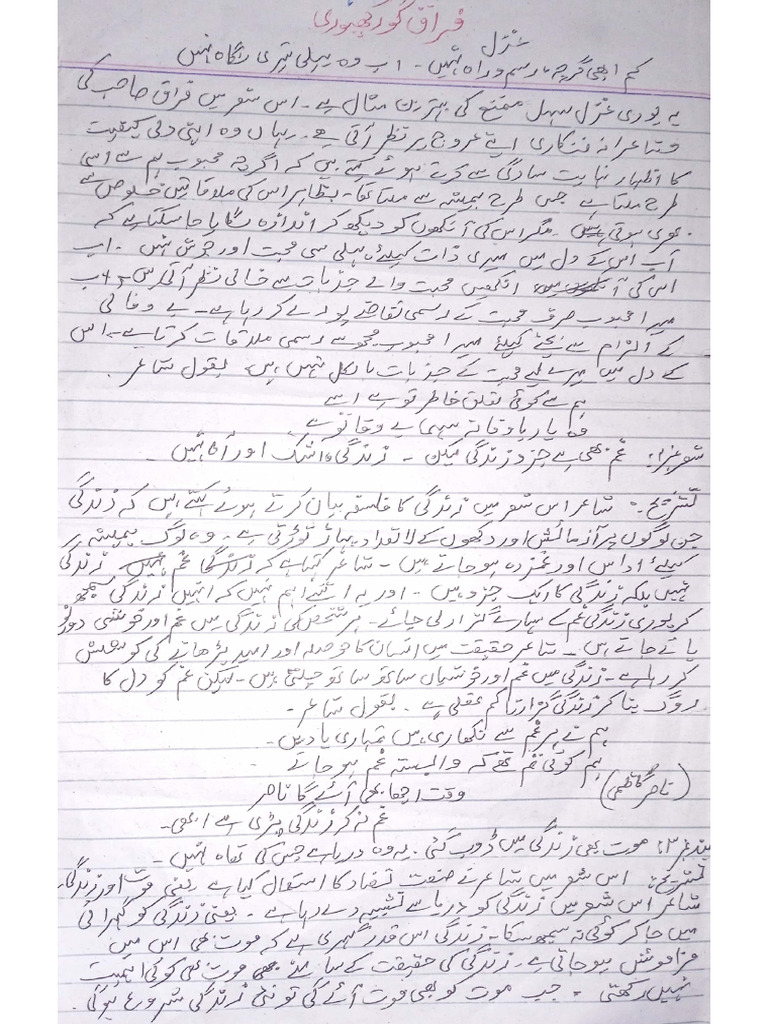 فراق گورکھپوری
غزل
کم ابھی گرچہ رسم و راہ نہیں - اب وہ پہلی تیری نگاہ نہیں
یہ پوری غزل سہل ممتنع کی بہترین مثال ہے - اس شعر میں فراق صاحب کی
شاعرانہ فنکاری اپنے عروج پر نظر آتی ہے - یہاں وہ اپنی دلی کیفیت
کا اظہار نہایت سادگی سے کرتے ہوئے کہتے ہیں کہ اگرچہ محبوب ہم سے اسی
طرح ملتا ہے جس طرح ہمیشہ سے ملتا تھا - بظاہر اس کی ملاقاتیں خلوص سے
بھری ہوتی ہیں - مگر اس کی آنکھوں کو دیکھ کر اندازہ لگایا جا سکتا ہے کہ
اب اس کے دل میں میری ذات کیلئے پہلی سی محبت اور جوش نہیں - اب
اس کی آنکھیں محبت والے جذبات سے خالی نظر آتی ہیں - اب
میرا محبوب صرف محبت کے رسمی تقاضے پورے کر رہا ہے - بے وفائی
کے الزام سے بچنے کیلئے میرا محبوب مجھ سے رسمی ملاقات کرتا ہے - اس
کے دل میں میرے لیے محبت کے جذبات بالکل نہیں ہیں بقول شاعر
ہم سے کوئی تعلق خاطر تو ہے اسے
وہ یار باوفا نہ سہی بے وفا تو ہے
شعر نمبر ۲: غم بھی ہے جزو زندگی لیکن - زندگی اشک اور آہ نہیں -
تشریح :- شاعر اس شعر میں زندگی کا فلسفہ بیان کرتے ہوئے کہتے ہیں کہ زندگی
جن لوگوں پر آزمائش اور دکھوں کے لاتعداد پہاڑ توڑتی ہے - وہ لوگ ہمیشہ
کیلئے اداس اور غمزدہ ہو جاتے ہیں - شاعر کہتا ہے کہ غم زندگی
نہیں بلکہ زندگی کا ایک جزو ہیں - اور یہ اتنے اہم نہیں کہ انہیں زندگی سمجھ
کر پوری زندگی غم کے سہارے گزار لی جائے - ہر شخص کی زندگی میں غم اور خوشی دونوں
پائے جاتے ہیں - شاعر حقیقت میں انسان کا حوصلہ اور امید بڑھانے کی کوشش
کر رہا ہے - زندگی میں غم اور خوشیاں ساتھ ساتھ چلتی ہیں - لیکن غم کو دل کا
روگ بنا کر زندگی گزارنا کم عقلی ہے - بقول شاعر -
ہم نے ہر غم سے نکھاری ہیں تمہاری یادیں -
ہم کوئی تم تھے کہ وابستہ غم ہو جاتے
وقت اچھا بھی آئے گا ناصر (ناصر کاظمی)
غم نہ کر زندگی پڑی ہے ابھی -
موت بھی زندگی میں ڈوب گئی - یہ وہ دریا ہے جس کی تھاہ نہیں -
تشریح: اس شعر میں شاعر نے صنعت تضاد کا استعمال کیا ہے یعنی موت اور زندگی -
شاعر اس شعر میں زندگی کو دریا سے تشبیہ دے رہا ہے - یعنی زندگی کو گہرائی
میں جا کر کوئی نہ سمجھ سکا - زندگی اس قدر گہری ہے کہ موت بھی اس میں
فراموش ہو جاتی ہے - زندگی کی حقیقت کے سامنے موت بھی کوئی اہمیت
نہیں رکھتی - جب موت کو بھی موت آئے گی تو نئی زندگی شروع ہوگی -